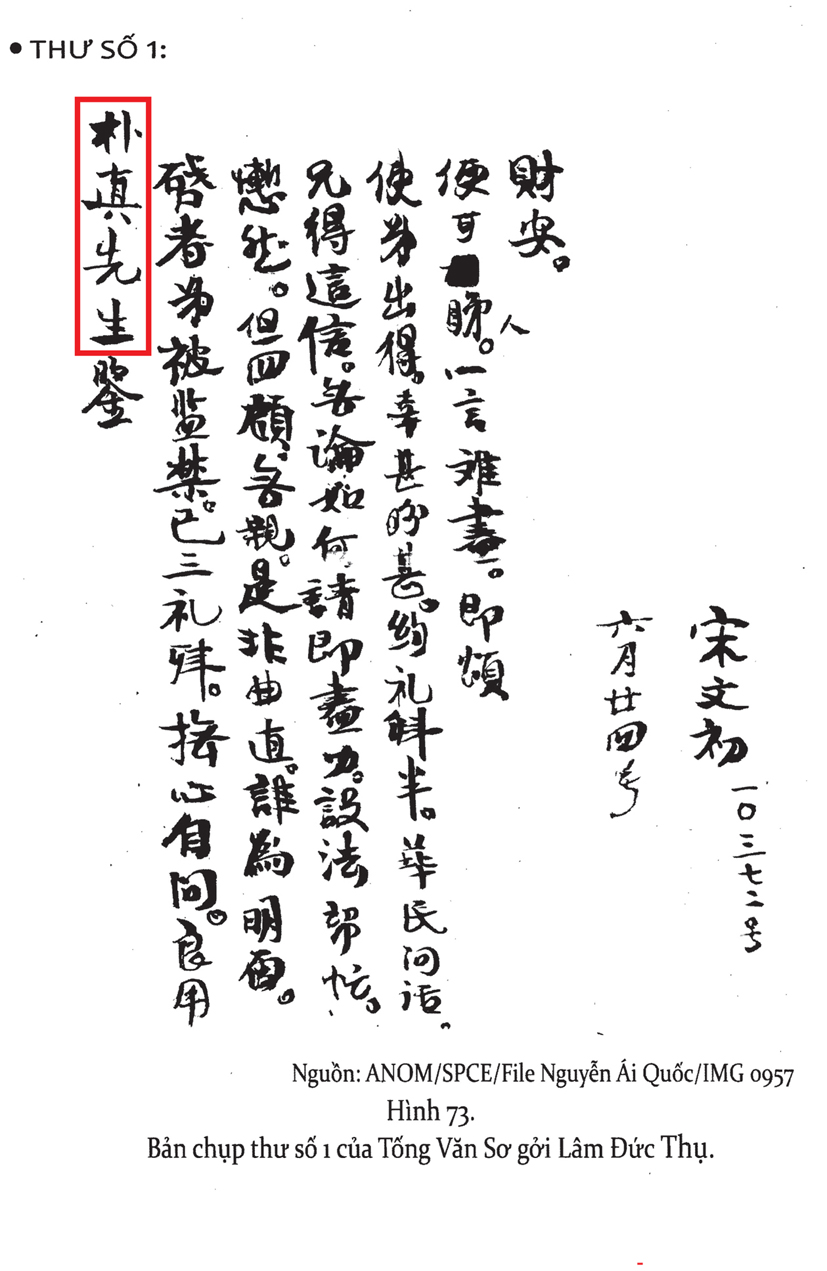 • THƯ SỐ 1:
朴真先生鑒
啓者弟被监禁。已三礼拜。撫心自问。良用
慙然。但四顧無親。是非曲直。誰為明白。
兄得這信。無論如何請即盡力。設法帮忙。
使弟出得。幸甚盼甚。約礼拜半。華民问话。
便可睇人。一言难盡。即頌
財安。
六月廿四号
宋文初 一〇三七二号
Nguồn: ANOM/SPCE/File Nguyễn Ái Quốc/IMG 0957
Hình 73.
Bản chụp thư số 1 của Tống Văn Sơ gởi Lâm Đức Thụ.